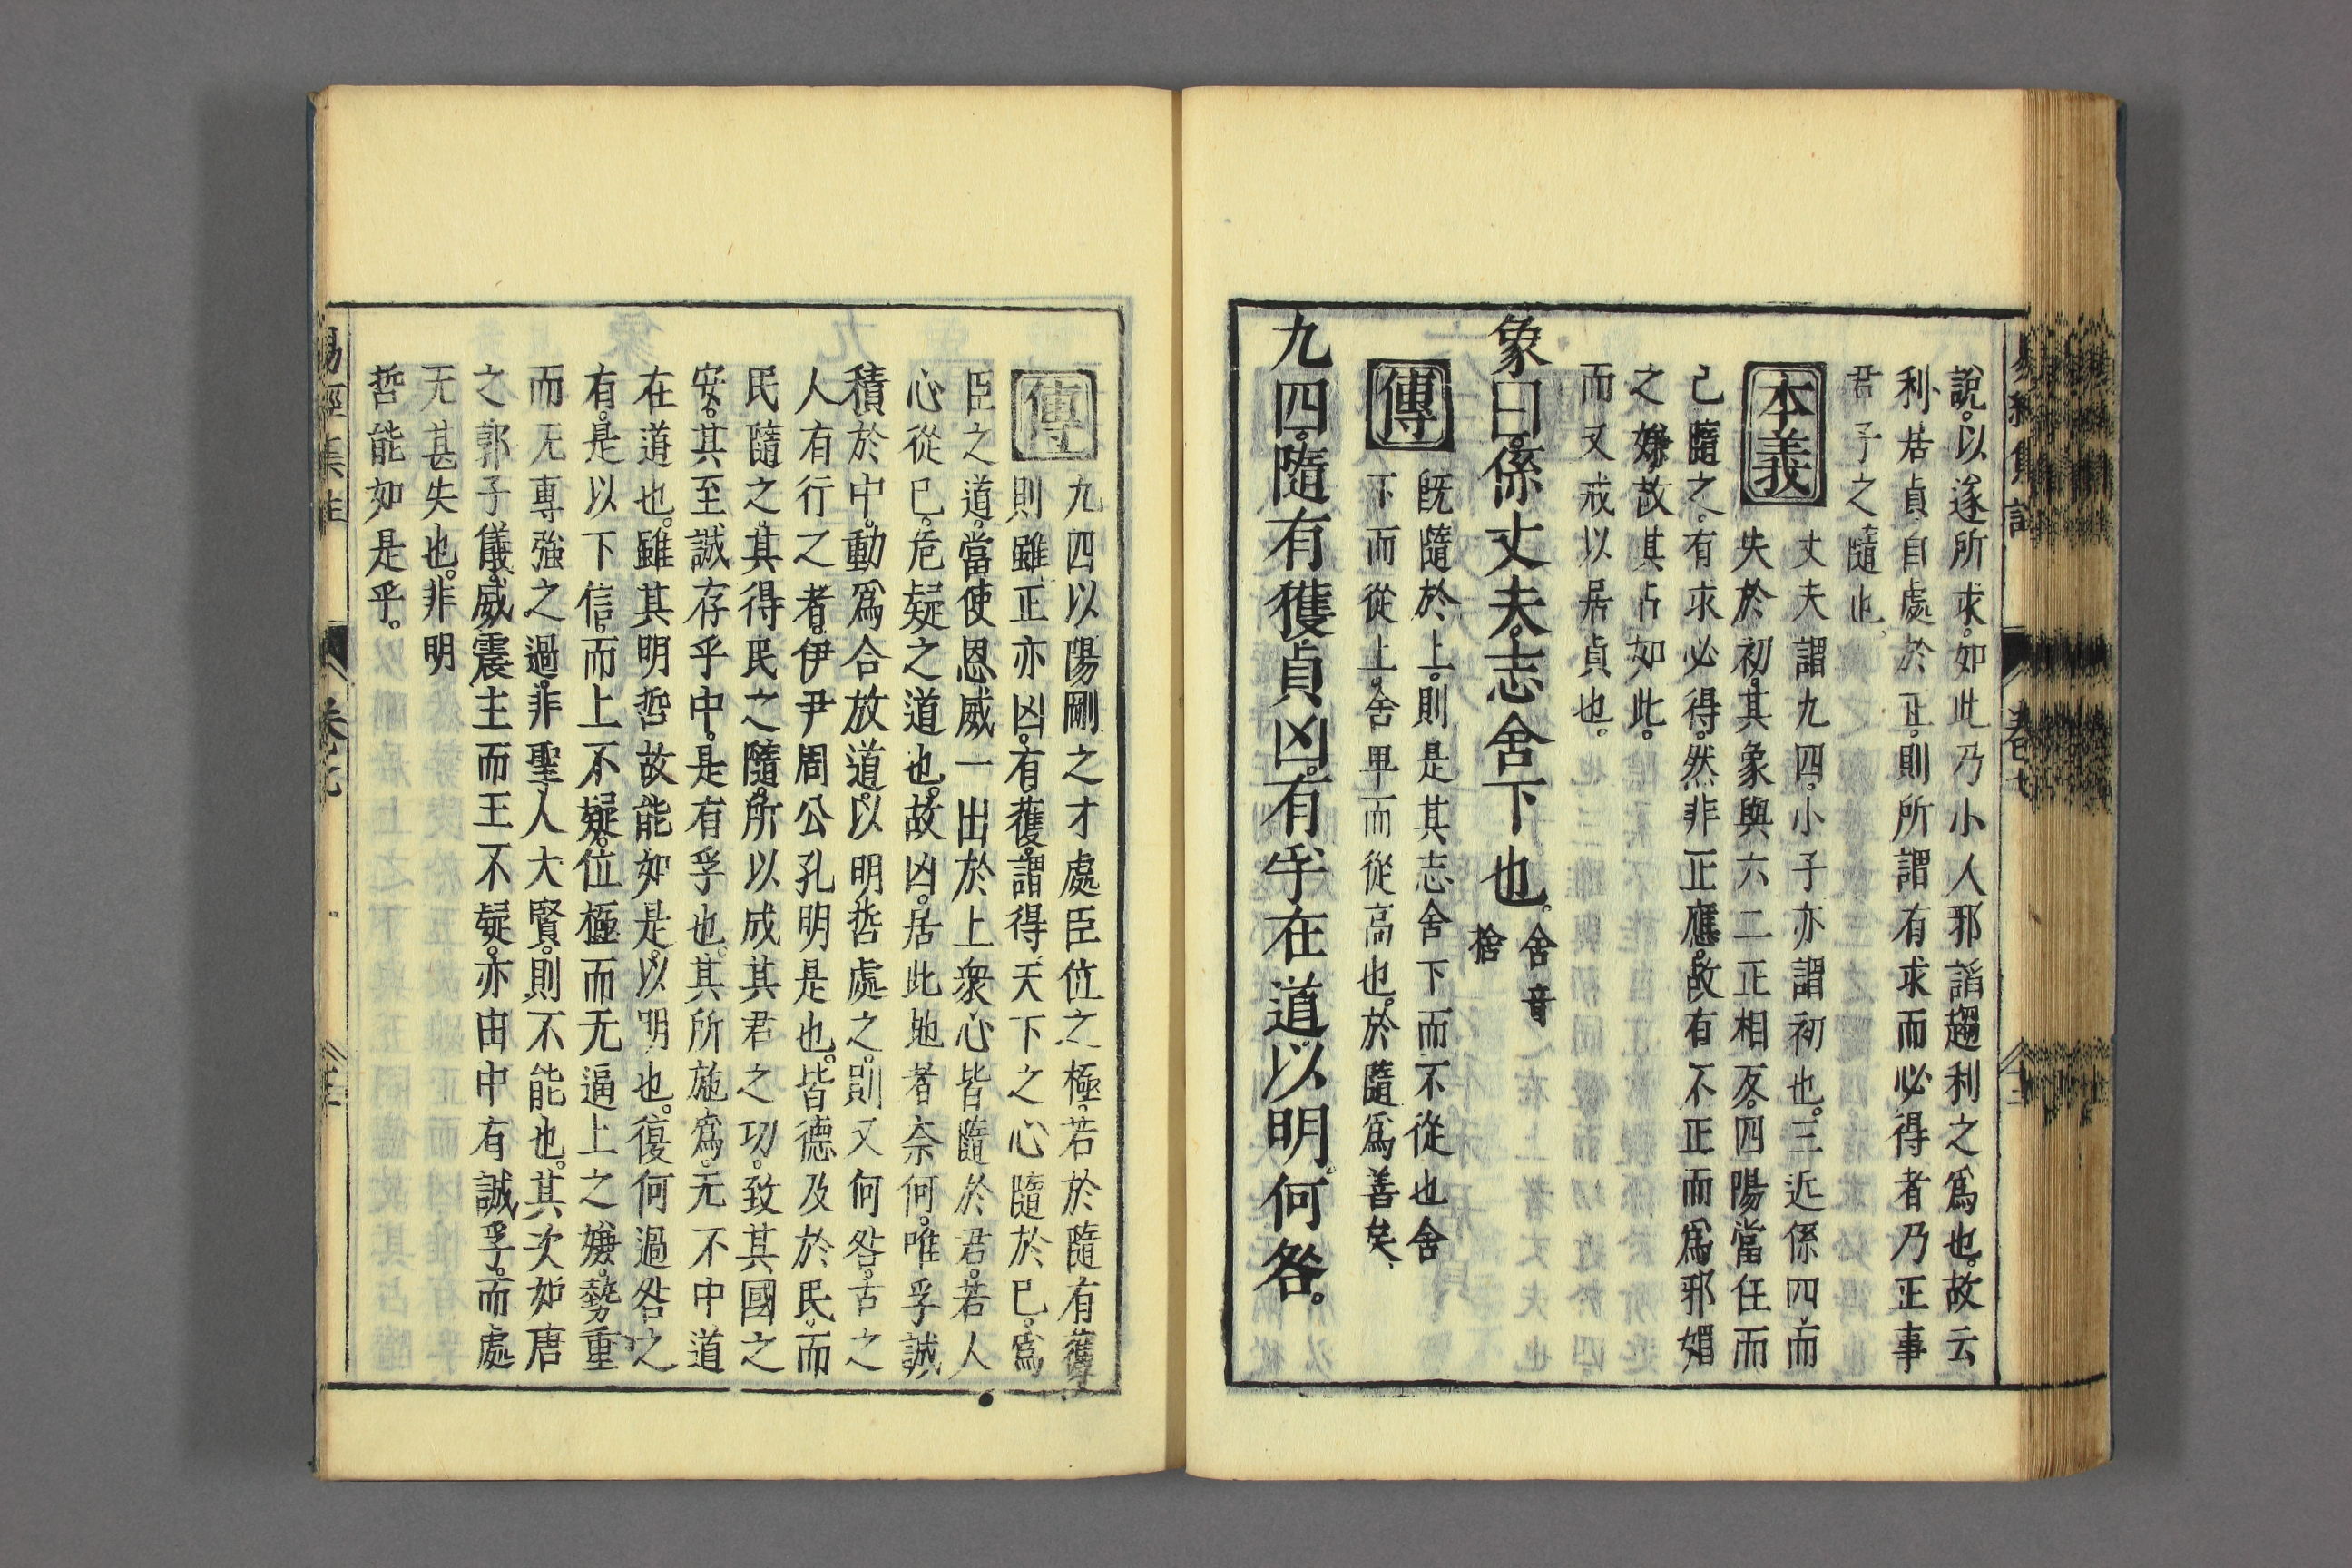 說。以遂所求。如此乃小人邪諂趨利之爲也。故云
利居貞。自處於正。則所謂有求而必得者乃正事
君子之隨也。
本義
丈夫謂九四。小子亦謂初也。三近係四而
失於初。其象與六二正相反。四陽當任而
己隨之。有求必得。然非正應。故有不正而爲邪媚
之嫌。故其占如此。
而又戒以居貞也。
象曰。係丈夫。志舍下也。
舍音
捨
傳
既隨於上。則是其志舍下而不從也舍
下而從上。舍卑而從高也。於隨爲善矣、
九四。隨有獲貞凶。有孚在道以明。何咎。
傳
九四以陽剛之才處臣位之極。若於隨有獲
則雖正亦凶。有獲。謂得天下之心隨於已。爲
臣之道。當使恩威一出於上衆心皆隨於君。若人
心從已。危疑之道也。故凶。居此地者奈何。唯孚誠
積於中。動爲合放道。以明哲處之。則又何咎。古之
人有行之者。伊尹周公孔明是也。皆德及於民。而
民隨之。其得民之隨。所以成其君之功。致其國之
安。其至誠存乎中。是有孚也。其所施爲。无不中道
在道也。雖其明哲故能如是。以明也。復何過咎之
有。是以下信。而上不疑。位極而无逼上之嫌。勢重
而无專強之過。非聖人大賢。則不能也。其次如唐
之郭子儀。威震主而王不疑。亦由中有誠孚。而處
无甚失也。非明
哲能如是乎。
易經集註